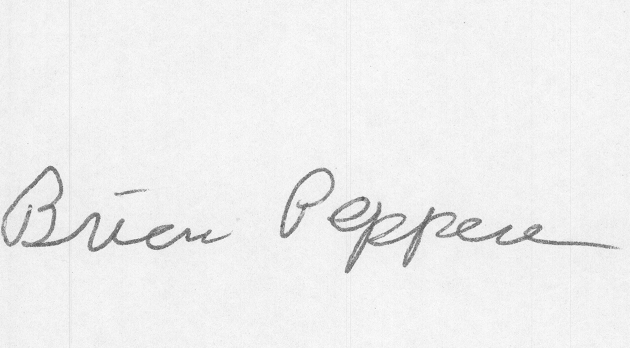 Brian Pepper